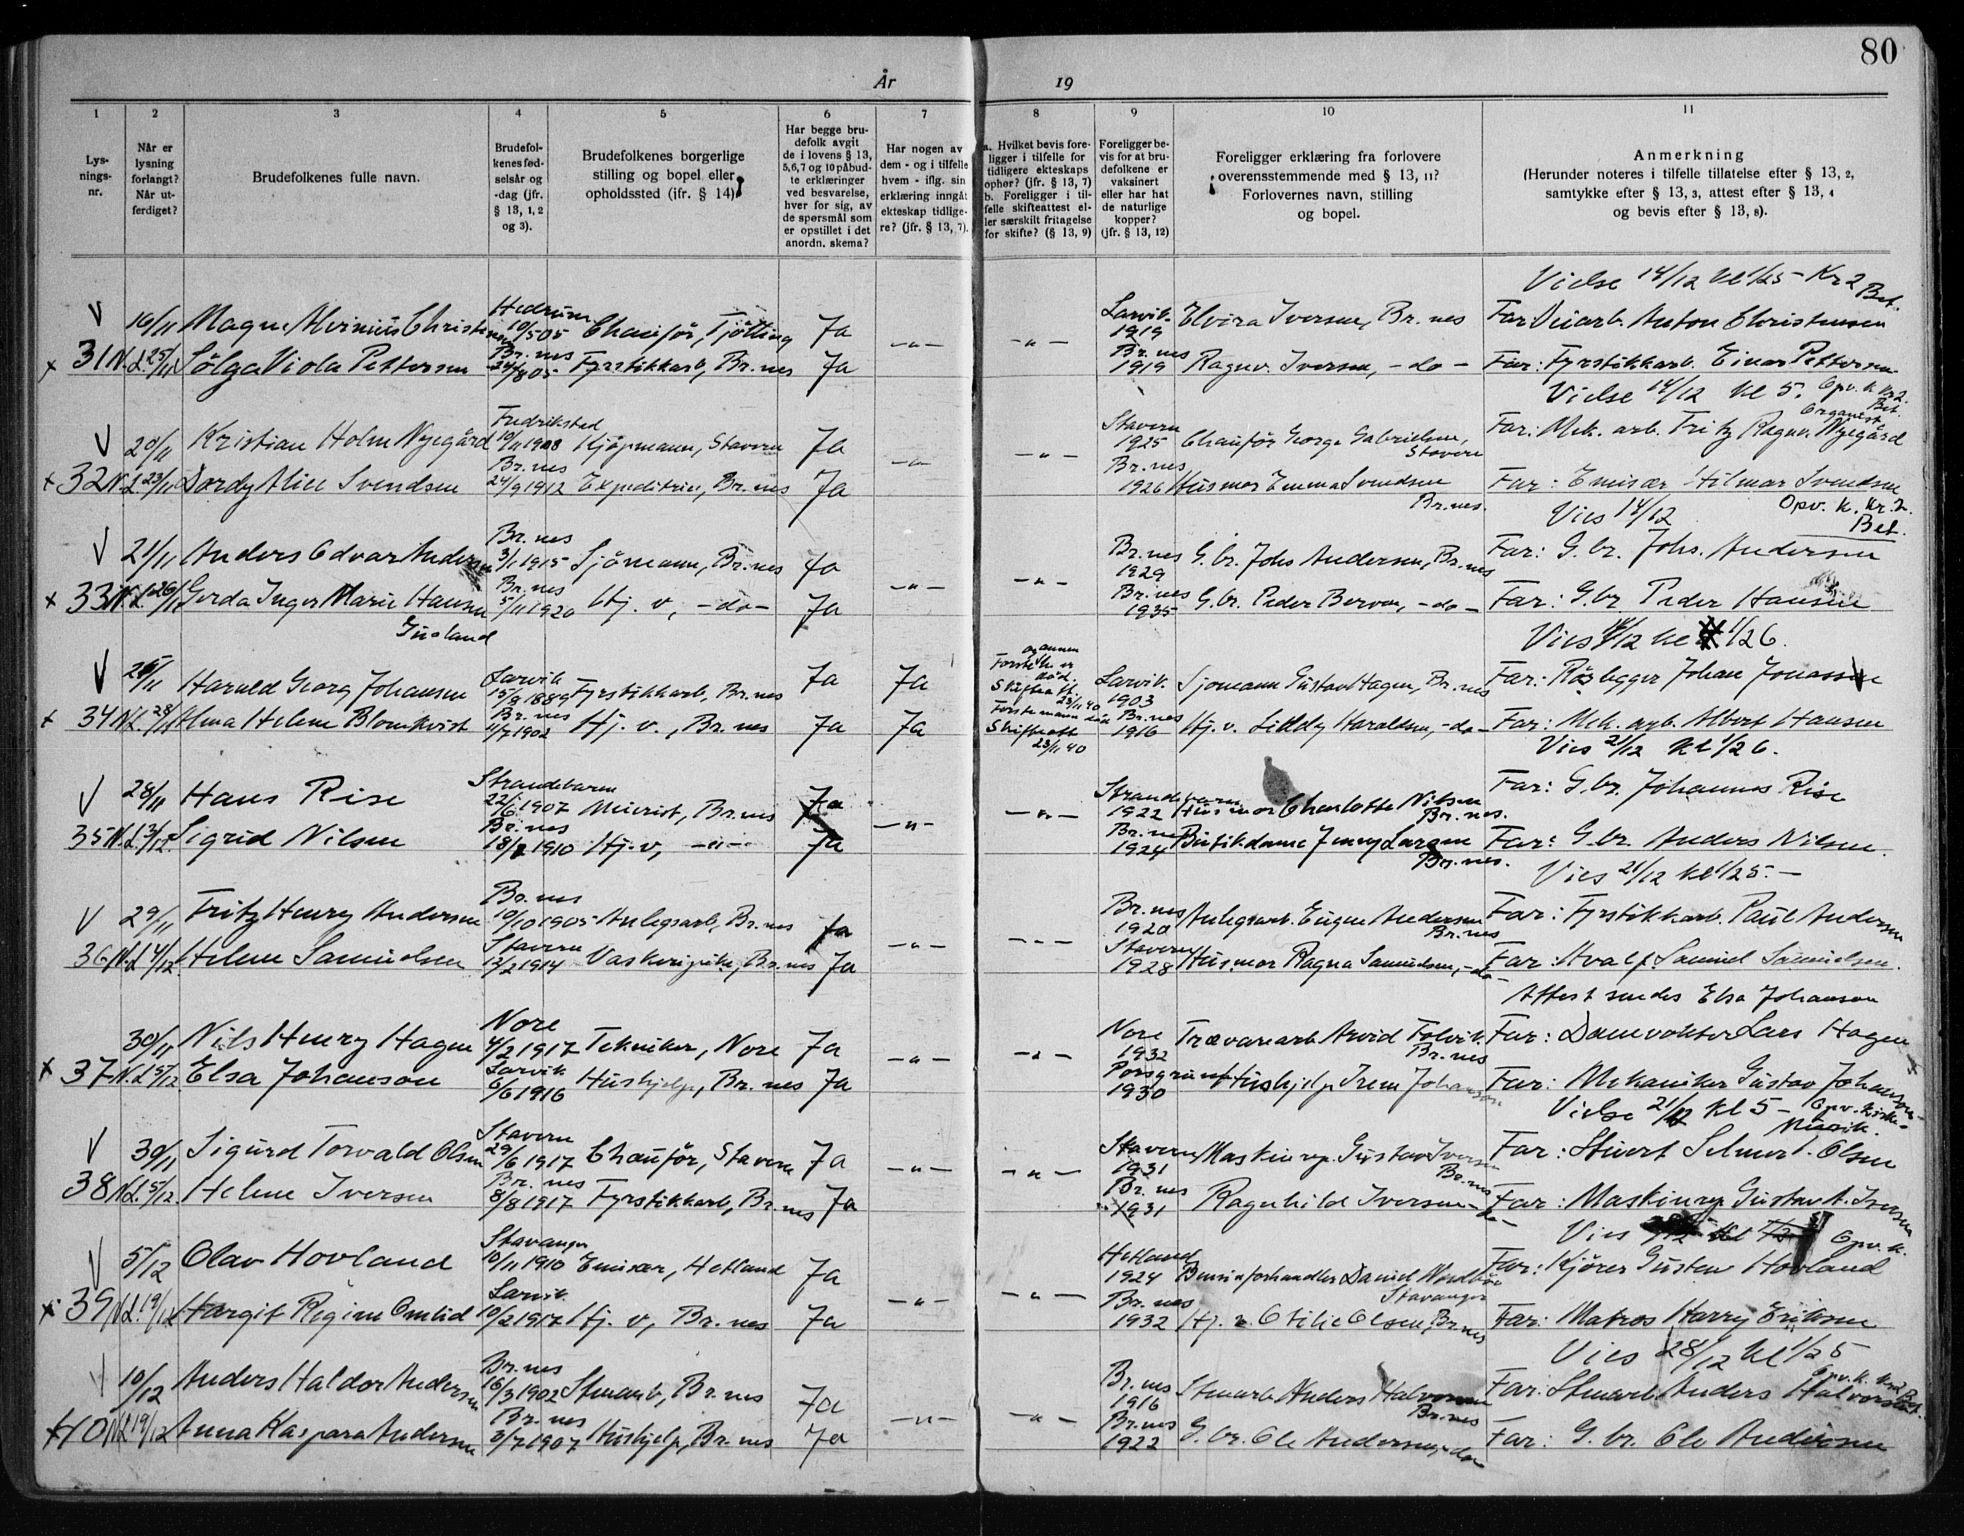 80
År 19
1 2 3 4 5 6 7 8 9 10 11
Lysningsnr.
Når er lysning forlangt? Når utferdiget?
Brudefolkenes fulle navn.
Brudefolkenes fødselsår og -dag (jfr. § 13, 1, 2 og 3).
Brudefolkenes borgerlige stilling og bopel eller opholdssted (jfr. § 14).
Har begge brudefolk avgit de i lovens § 13, 5,6,7 og 10 påbudte erklæringer ved besvarelse, hver for sig, av de spørsmål som er opstillet i det anordn. skema?
Har nogen av dem - og i tilfelle hvem - iflg. sin erklæring inngåt ekteskap tidligere? (jfr. § 13, 7).
a. Hvilket bevis foreligger i tilfelle for tidligere ekteskaps ophør? (jfr. § 13, 7) b. Foreligger i tilfelle skifteattest eller særskilt fritagelse for skifte? (§ 13, 9)
Foreligger bevis for at brudefolkene er vaksinert eller har hat de naturlige kopper? (jfr. § 13, 12)
Foreligger erklæring fra forlovere overensstemmende med § 13, 11? Forlovernes navn, stilling og bopel.
Anmerkning (Herunder noteres i tilfelle tillatelse efter § 13, 2, samtykke efter § 13, 3, attest efter § 13, 4 og bevis efter § 13, 8).
Vielse 14/12 kl 1/2 5 - Kr 2 Bet.
V 19/11 Magn Alvinius Christensen Hedrum 19/5 05 Chaufför, Tjölling Ja -"- -"- Larvik 1919 Elvira Iversen, Br.nes Far: Anton Christensen
x 31 N.L. 25/11 Sölga Viola Pettersen Br.nes 24/8 05 Fyrstikkarb, Br.nes Ja Br.nes 1919 Ragnv. Iversen, -do- Far: Fyrstikkarb. Einar Pettersen
Vielse 14/12 kl 5. Opv. k Kr 2. Bet. Organist
V 20/11 Kristian Holm Nyegård Fredrikstad 10/11 1908 Kjøpmann, Stavern Ja -"- -"- Stavern 1925 Chaufför George Gabrielsen, Stavern Far: Mek. arb. Fritz Ragnv. Nyegård
x 32 N.L. 23/11 Dordy Alice Svendsen Br.nes 24/9 1912 Expeditrise, Br.nes Ja Br.nes 1926 Husmor Emma Svendsen Br.nes. Far: Emisær Hilmar Svendsen
Vies 14/12 Opv. k. Kr. 2. Bet.
V 21/11 Anders Edvar Andersen Br.nes 3/1 1915 Sjömann, Br.nes Ja -"- -"- Br.nes 1929 G.br. Johs Andersen, Br.nes Far: G.br. Johs. Andersen
x 33 N.L. 26/11 Gerda Inger Marie Hansen Gusland Br.nes 5/11 1920 Hj. v, -do- Ja Br.nes 1935 G.br. Peder Berven, -do- Far: G.br. Peder Hansen
Vies 14/12 kl 1/2 6.
V 26/11 Harald Georg Johansen Larvik 15/8 1889 Fyrstikkarb, Br.nes Ja Ja Skifteatt. 23/11 40 Larvik 1903 Sjømann Gustav Hagen, Br.nes Far: Rørlegger Johan Jonassen
x 34 N.L. 28/11 Alma Helene Blomkvist Br.nes 11/7 1902 Hj. v., Br.nes Ja Ja Første mann død Skifteatt 23/11 40 Br.nes 1916 Hj. v. Liddy Haraldsen, -do- Far: Mek. arb. Albert Hansen
Vies 21/12 kl 1/2 6.
V 28/11 Hans Rise Strandebarm 22/6 1907 Meierist, Br.nes Ja -"- -"- Strandebarm 1922 Husmor Charlotte Nilsen Br.nes. Far: G.br. Johannes Rise
35 N.L. 3/12 Sigrid Nilsen Br.nes 18/ 1910 Hj. v, -"- Ja Br.nes 1924 Butikdame Jenny Larsen Br.nes. Far: G.br. Anders Nilsen
Vies 21/12 kl 1/2 5. -
V 29/11 Fritz Henry Andersen Br.nes 19/10 1905 Anlegsarb, Br.nes Ja -"- -"- Br.nes 1920 Anlegsarb. Eugen Andersen Br.nes Far: Fyrstikkarb. Paul Andersen
36 N.L. 4/12 Helene Samuelsen Stavern 12/2 1914 Vaskeripike, Br.nes Ja Stavern 1928 Husmor Ragna Samuelsen, -do- Far: Hvalf. Samuel Samuelsen.
Attest sendes Elsa Johanson
30/11 Nils Henry Hagen Nore 4/2 1917 Tekniker, Nore Ja -"- -"- Nore 1932 Trævarearb Arvid Br.nes Far: Damvokter Lars Hagen
x 37 N.L. 5/12 Elsa Johanson Larvik 6/6 1916 Hushjelp, Br.nes Ja Porsgrunn 1930 Hushjelp Irene Johanson Far: Mekaniker Gustav Johanson
Vielse 21/12 kl 5 - Opv. kirke- Musik.
V 30/11 Sigurd Torvald Olsen Stavern 29/6 1917 Chaufför, Stavern Ja -"- -"- Stavern 1931 Maskinrep. Gustav Iversen Br.nes Far: Stuert Selmer T. Olsen
38 N.L. 5/12 Helene Iversen Br.nes 8/8 1917 Fyrstikkarb, Br.nes Ja Br.nes 1931 Ragnhild Iversen -do- Far: Maskinrep Gustav A. Iversen
Vies Opv. k.
V 5/12 Olav Hovland Stavanger 19/11 1910 Emisær, Hetland Ja -"- -"- Hetland 1924 Bensinforhandler Daniel Stavanger Far: Kjører Gustav Hovland
x 39 N.L. 19/12 Margit Regine Omlid Larvik 10/2 1917 Hj. v, Br.nes Ja Br.nes 1932 Hj. v Otilie Olsen, Br.nes Far: Matros Harry Eriksen
Vies 28/12 kl 1/2 5 Opv. k. Kr 2 Bet.
V 10/12 Anders Haldor Andersen Br.nes 16/3 1902 Stenarb, Br.nes Ja -"- -"- Br.nes 1916 Stenarb Anders Halvorsen Br.nes Far: Stenarb Anders Halvorsen
x 40 N.L. 19/12 Anna Kaspara Andersen Br.nes 3/7 1907 Hushjelp, Br.nes Ja Br.nes 1922 G.br. Ole Andersen, -do- Far: G.br. Ole Andersen